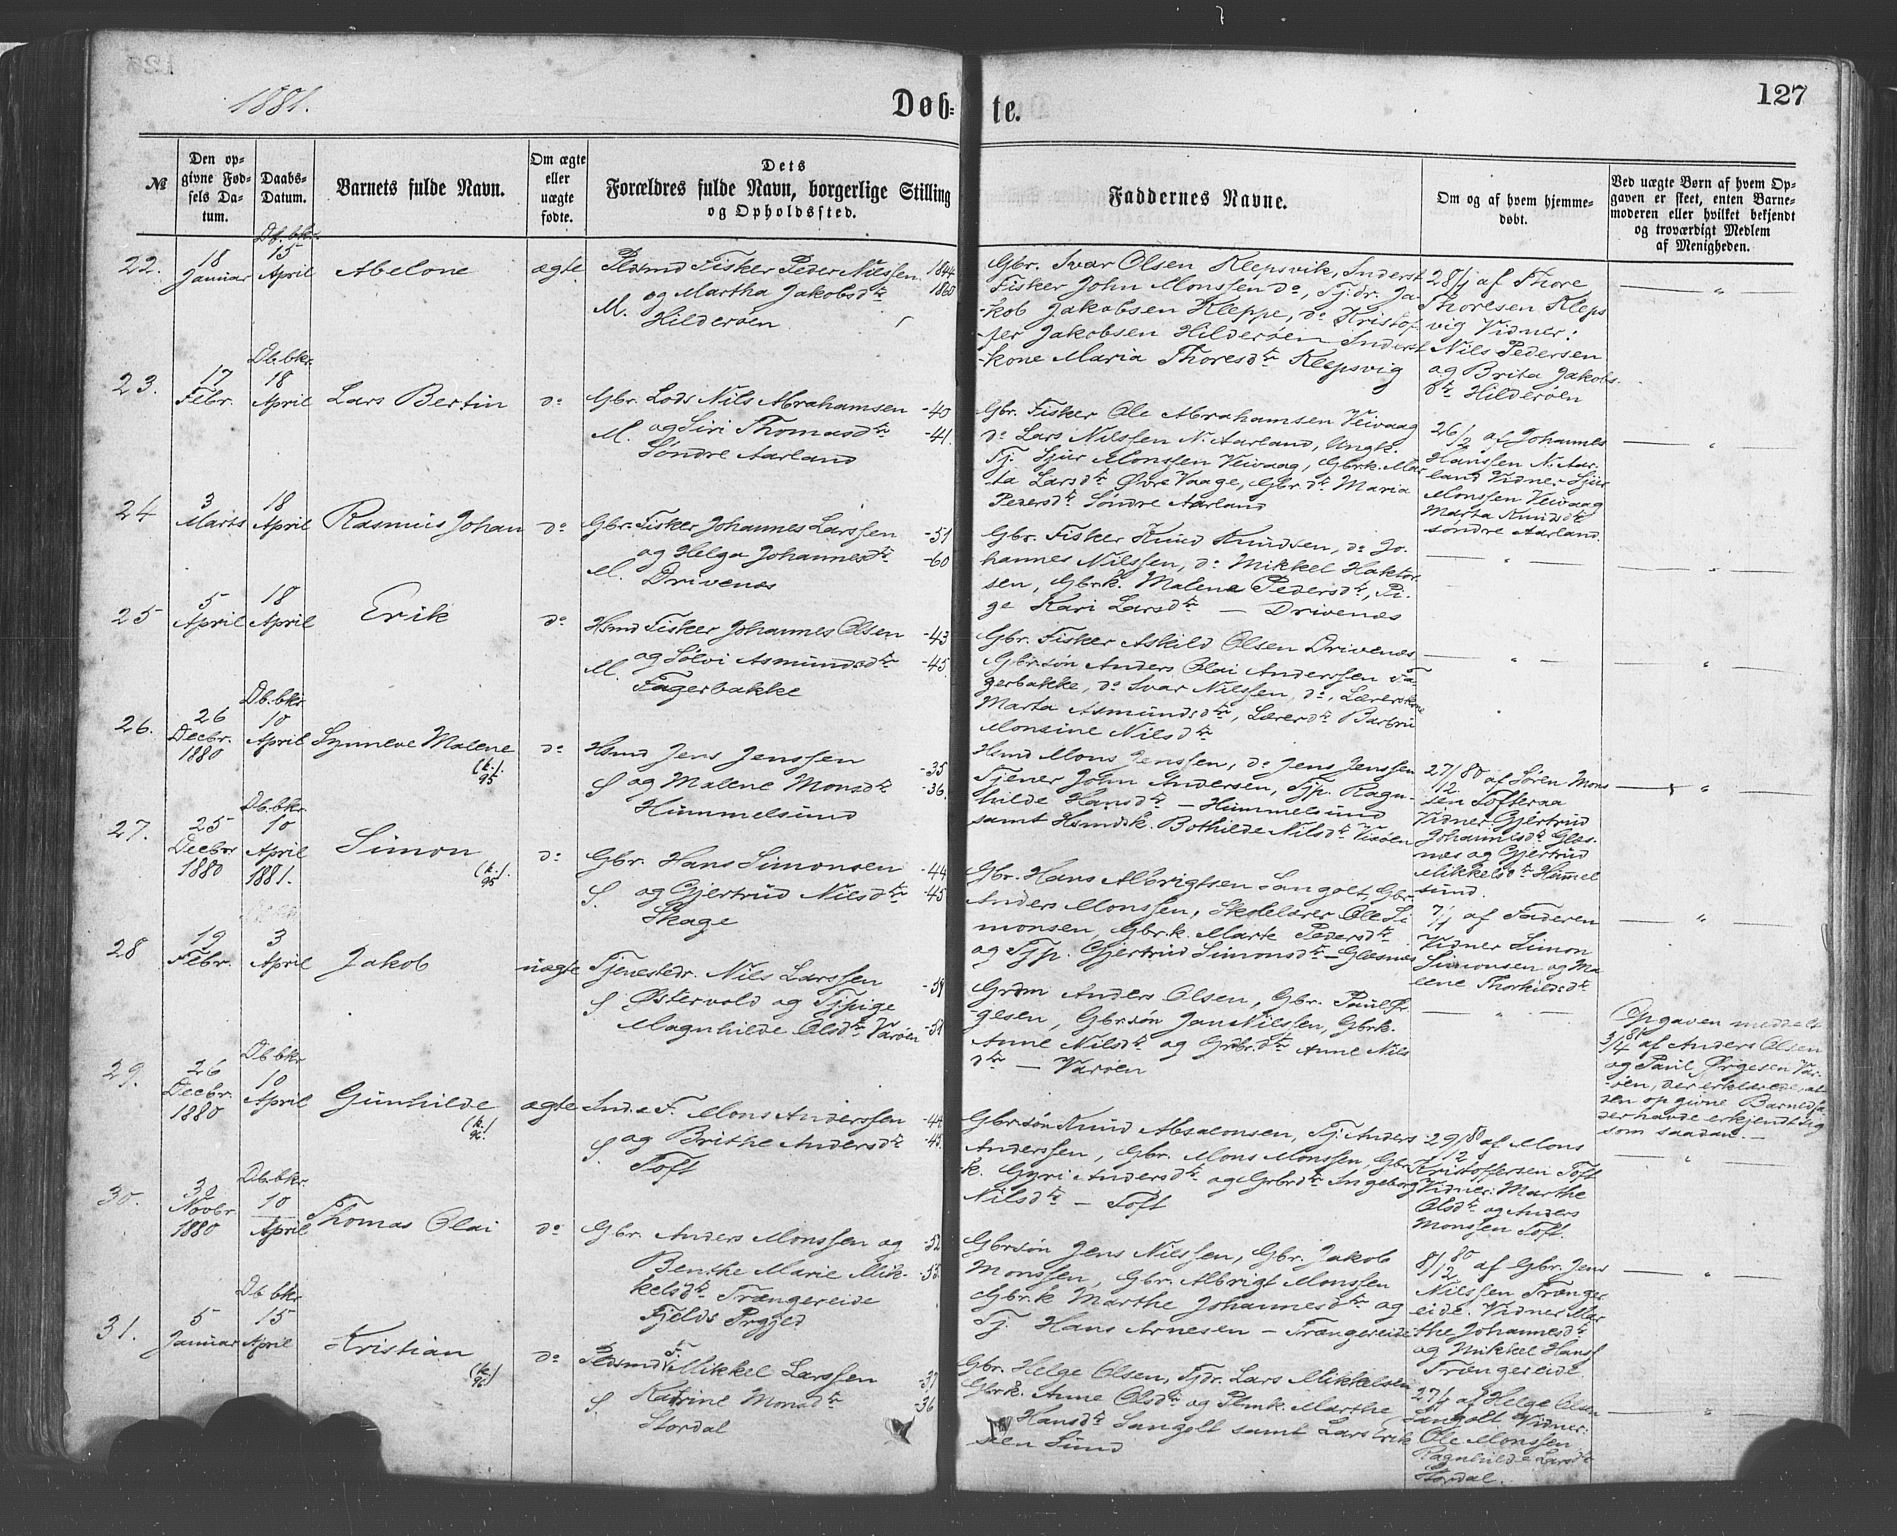 1881.
Døb-
te.
127
№
Den op-
givne Fød-
sels Da-
tum.
Daabs-
Datum.
Barnets fulde Navn.
Om ægte
eller
uægte
fødte.
Dets
Forældres fulde Navn, borgerlige Stilling
og Opholdssted.
Faddernes Navne.
Om og af hvem hjemme-
døbt.
Ved uægte Børn af hvem Op-
gaven er skeet, enten Barne-
moderen eller hvilket bekjendt
og troværdigt Medlem
af Menigheden.
22.
18
Januar
Db.bkr.
15
April
Abelone
ægte
Pldsmd Fisker Peder Nilssen 1844
og Martha Jakobsdtr 1860
M. Hilderøen
Gbr. Ivar Olsen Klepsvik, Inderst
Fisker John Monssen do, Tj.dr. Ja-
kob Jakobsen Kleppe, do Kristof-
fer Jakobsen Hilderøen Inderst
kone Maria Thoresdtr Klepsvig
28/1 af Thore
Thoresen Kleps
vig Vidner:
Nils Pedersen
og Brita Jakobs
dtr Hilderøen
— " —
23.
17
Febr.
Db.bkr.
18
April
Lars Bertin
do
Gbr. Lods Nils Abrahamsen -40
og Siri Thomasdtr -41.
M. Søndre Aarland
Gbr. Fisker Ole Abrahamsen Veivaag
do Lars Nilssen N. Aarland, Ungk.
Tj. Sjur Monssen Veivaag, Gbrk. Mar
ta Larsdtr Øvre Vaage, Gbr.dtr Maria
Pedersdtr Søndre Aarland
26/2 af Johannes
Hanssen N. Aar-
land Vidner Sjur
Monssen Veivaag
Marta Knudsdtr
søndre Aarland.
— " —
24
3
Marts
18
April
Rasmus Johan
do
Gbr. Fisker Johannes Larssen -51
og Helga Johannesdtr -60
M. Drivenæs
Gbr. Fisker Knud Knudsen, do Jo-
hannes Nilssen, do Mikkel Haktor-
sen, Gbrk. Malena Pedersdtr, Pi-
ge Kari Larsdtr — Drivenæs
— " —
— " —
25
5
April
18
April
Erik
do
Hsmd Fisker Johannes Olsen -43
og Sølvi Asmundsdtr -45
M. Fagerbakke
Gbr. Fisker Askild Olsen Drivenæs
Gbrsøn Anders Olai Anderssen Fa-
gerbakke, do Ivar Nilssen, do, Lærerskone
Marta Asmundsdtr, Lærerdtr Barbru
Monsine Nilsdtr
— " —
— " —
26.
26
Decbr.
1880
Db.bkr.
10
April
Synneve Malene
(k.)
95
do
Hsmd Jens Jenssen -35
S og Malene Monsdtr -36.
Hummelsund
Hsmd Mons Jenssen, do Jens Jenssen
Tjener John Andersen, Tjp. Ragn-
hilde Hansdtr — Hummelsund
samt Hsmdsk. Bothilde Nilsdtr Visøen
27/12 80 af Søren Mons
sen Tofteraa
Vidner Gjertrud
Johannesdtr Glæs-
næs og Gjertrud
Mikkelsdtr Hummel
sund.
— " —
27.
25
Decbr
1880
Db.bkr.
10
April
1881.
Simon
(k.)
95
do
Gbr. Hans Simonsen -44
S. og Gjertrud Nilsdtr -45
Skage
Gbr. Hans Albrigtsen Sangolt, Gbr
Anders Monssen, Skolelærer Ole Si-
monsen, Gbrk. Marte Pedersdtr
og Tjp. Gjertrud Simonsdtr — Glæsnæs
7/1 af Faderen
Vidner Simon
Simonsen og Ma
lene Thorkildsdtr
— " —
28
19
Febr.
3
April
Jakob
uægte
Tjenestedr. Nils Larssen -59
S Østervold og Tjpige
Magnhilde Olsdtr Varøen -51
Grdm Anders Olsen, Gbr. Paul Ør-
gesen, Gbrsøn Jan Nilssen, Gbrk.
Anne Nilsdtr og Grdbr.dtr Anne Nils
dtr — Varøen
— " —
Opgaven meddelt
3/4 81 af Anders Olsen
og Paul Ørgesen Var-
øen, der erklærede, at
den opgivne Barnefa
der havde erkjendt sig
som saadan. —
29.
26
Decbr.
1880
Db.bkr
10
April
Gunhilde
(k.)
96.
ægte
Inds. F. Mons Anderssen -44
S og Brithe Andersdtr -45.
Toft
Gbrsøn Knud Absalonsen, Tj. Anders
Anderssen, Gbr. Mons Monssen, Gbr
k. Gyri Andersdtr og Grbrdtr Ingeborg
Nilsdtr — Toft
29/12 80 af Mons
Kristoffersen Toft
Vidner: Marthe
Olsdtr og Anders
Monssen Toft.
— " —
30.
30
Novbr
1880
Db.bkr.
10
April
Thomas Olai
do
Gbr. Anders Monssen og -52
Benthe Marie Mik- -55.
kelsdtr Trængereide
Fjelds Prgjed
Gbrsøn Jens Nilssen, Gbr. Jakob
Monssen, Gbr. Albrigt Monssen
Gbr.k Marthe Johannesdtr og
Tj. Hans Arnesen — Trængereide
8/12 80 af Gbr. Jens
Nilssen Trænger
eide. Vidner Mar
the Johannesdtr
og Mikkel Hans
Trængereide.
— " —
31.
5
Januar
Db bkr.
15
April
Kristian
(k)
96.
do
Pldsmd F. Mikkel Larssen -37
S. Katrine Monsdtr -36
Stordal
Gbr. Helge Olsen, Tjdr. Lars Mikkelsen
Gbrk. Anne Olsdtr og Plmk. Marthe
Hansdtr Sangolt samt Lars Erik
sen Sund
27/1 af Helge Olsen
Sangolt Vidner:
Ole Monssen
Ragnhilde Larsdtr
Stordal.
— " —